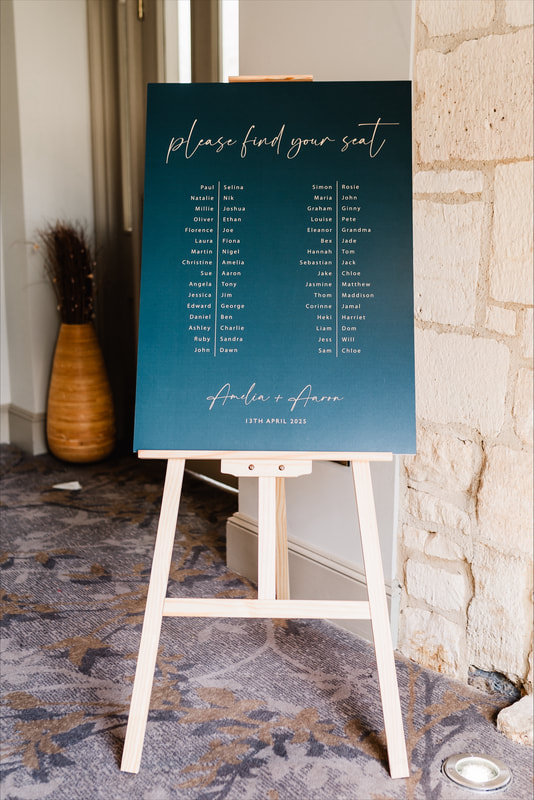 please find your seat
Paul Selina
Natalie Nik
Millie Joshua
Oliver Ethan
Florence Joe
Laura Fiona
Martin Nigel
Christine Amelia
Sue Aaron
Angela Tony
Jessica Jim
Edward George
Daniel Ben
Ashley Charlie
Ruby Sandra
John Dawn
Simon Rosie
Maria John
Graham Ginny
Louise Pete
Eleanor Grandma
Bex Jade
Hannah Tom
Sebastian Jack
Jake Chloe
Jasmine Matthew
Thom Maddison
Corinne Jamal
Heki Harriet
Liam Dom
Jess Will
Sam Chloe
Amelia + Aaron
13TH APRIL 2025